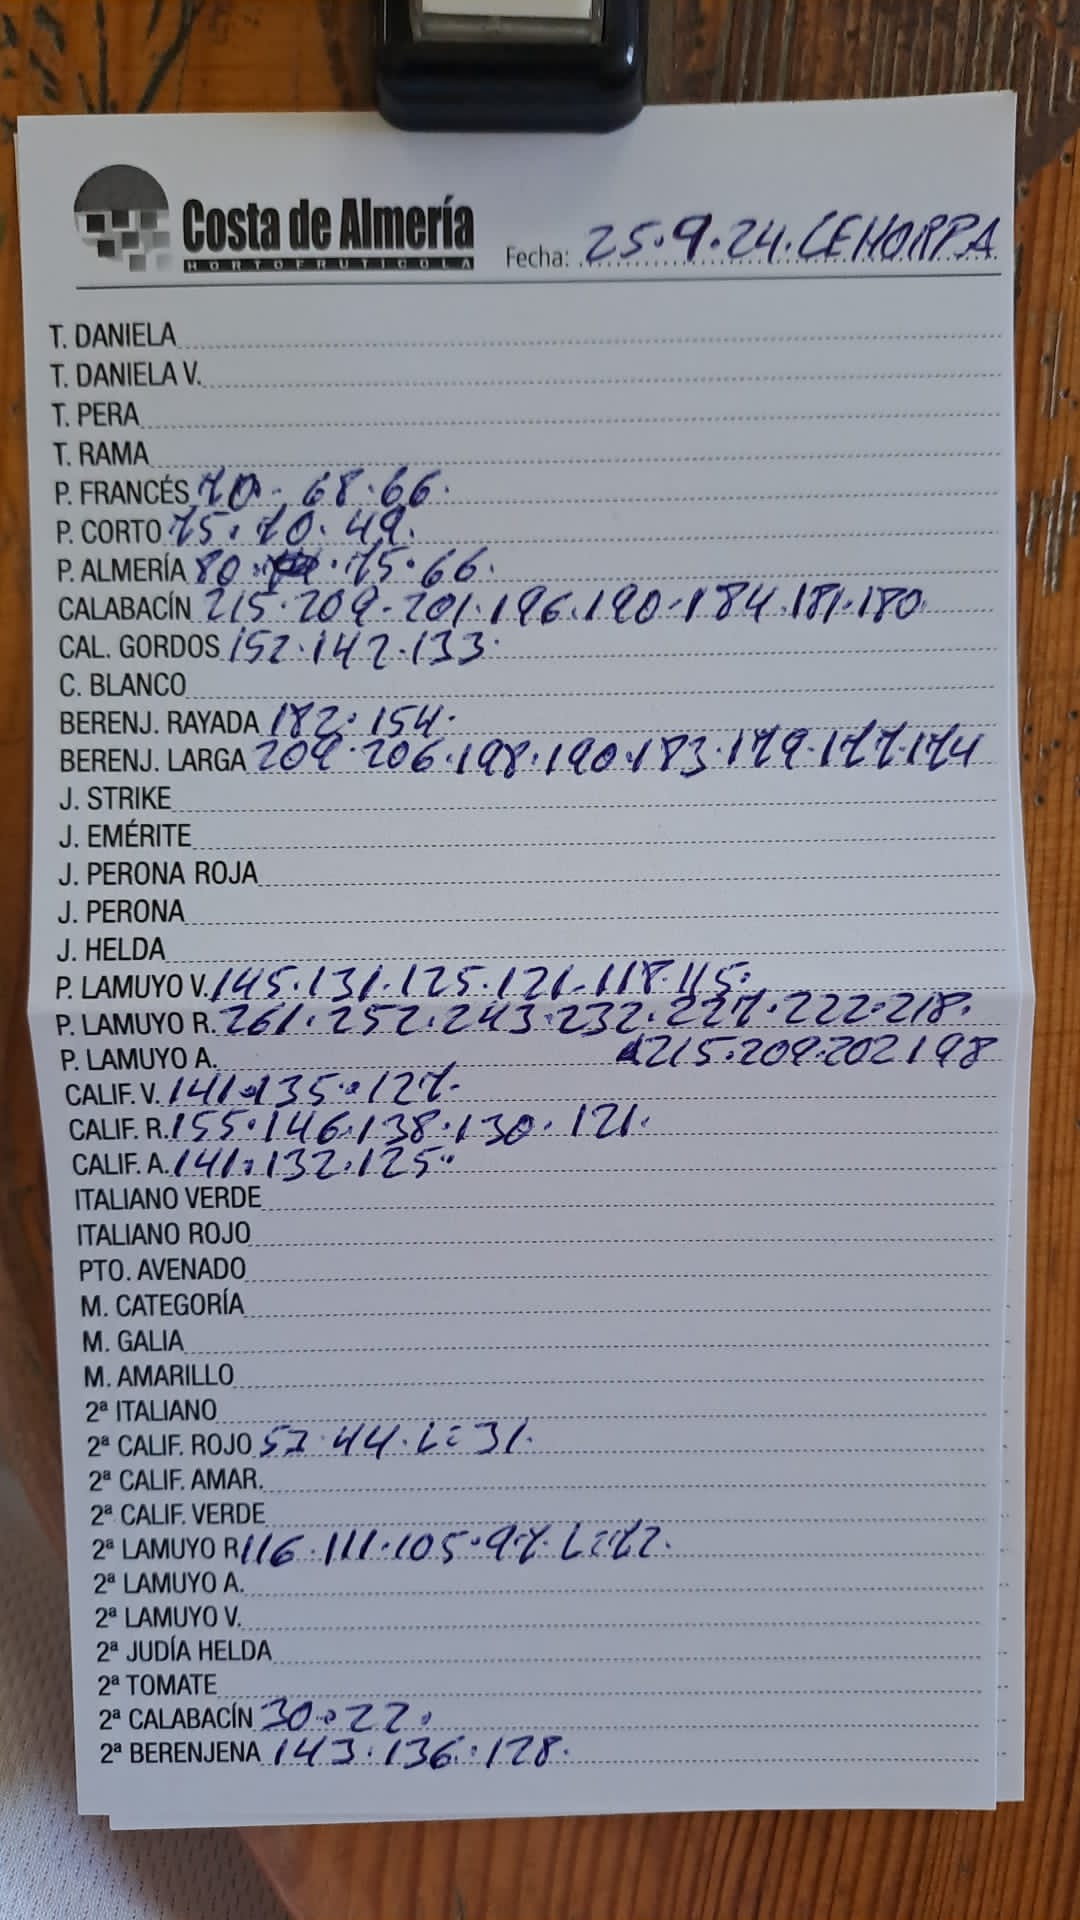 Costa de Almería
HORTOFRUTICOLA
Fecha: 25.9.24. CEHORPA
T. DANIELA
T. DANIELA V.
T. PERA
T. RAMA
P. FRANCÉS 70. 68.66.
P. CORTO 75.70.49.
P. ALMERÍA 80. 75.66.
CALABACÍN 215.209.201.196.190.184.181.180
CAL. GORDOS 152.142.133.
C. BLANCO
BERENJ. RAYADA 182.154.
BERENJ. LARGA 209.206.198.190.183.179.177.174
J. STRIKE
J. EMÉRITE
J. PERONA ROJA
J. PERONA
J. HELDA
P. LAMUYO V. 145.131.125.121.118.115.
P. LAMUYO R. 261.252.243.232.227.222.218.
P. LAMUYO A. 215.209.202 198
CALIF. V. 141.135.127.
CALIF. R. 155.146.138.130.121.
CALIF. A. 141.132.125.
ITALIANO VERDE
ITALIANO ROJO
PTO. AVENADO
M. CATEGORÍA
M. GALIA
M. AMARILLO
2ª ITALIANO
2ª CALIF. ROJO 57.44.L=31.
2ª CALIF. AMAR.
2ª CALIF. VERDE
2ª LAMUYO R 116.111.105.97.L=72.
2ª LAMUYO A.
2ª LAMUYO V.
2ª JUDÍA HELDA
2ª TOMATE
2ª CALABACÍN 30.22.
2ª BERENJENA 143.136.128.